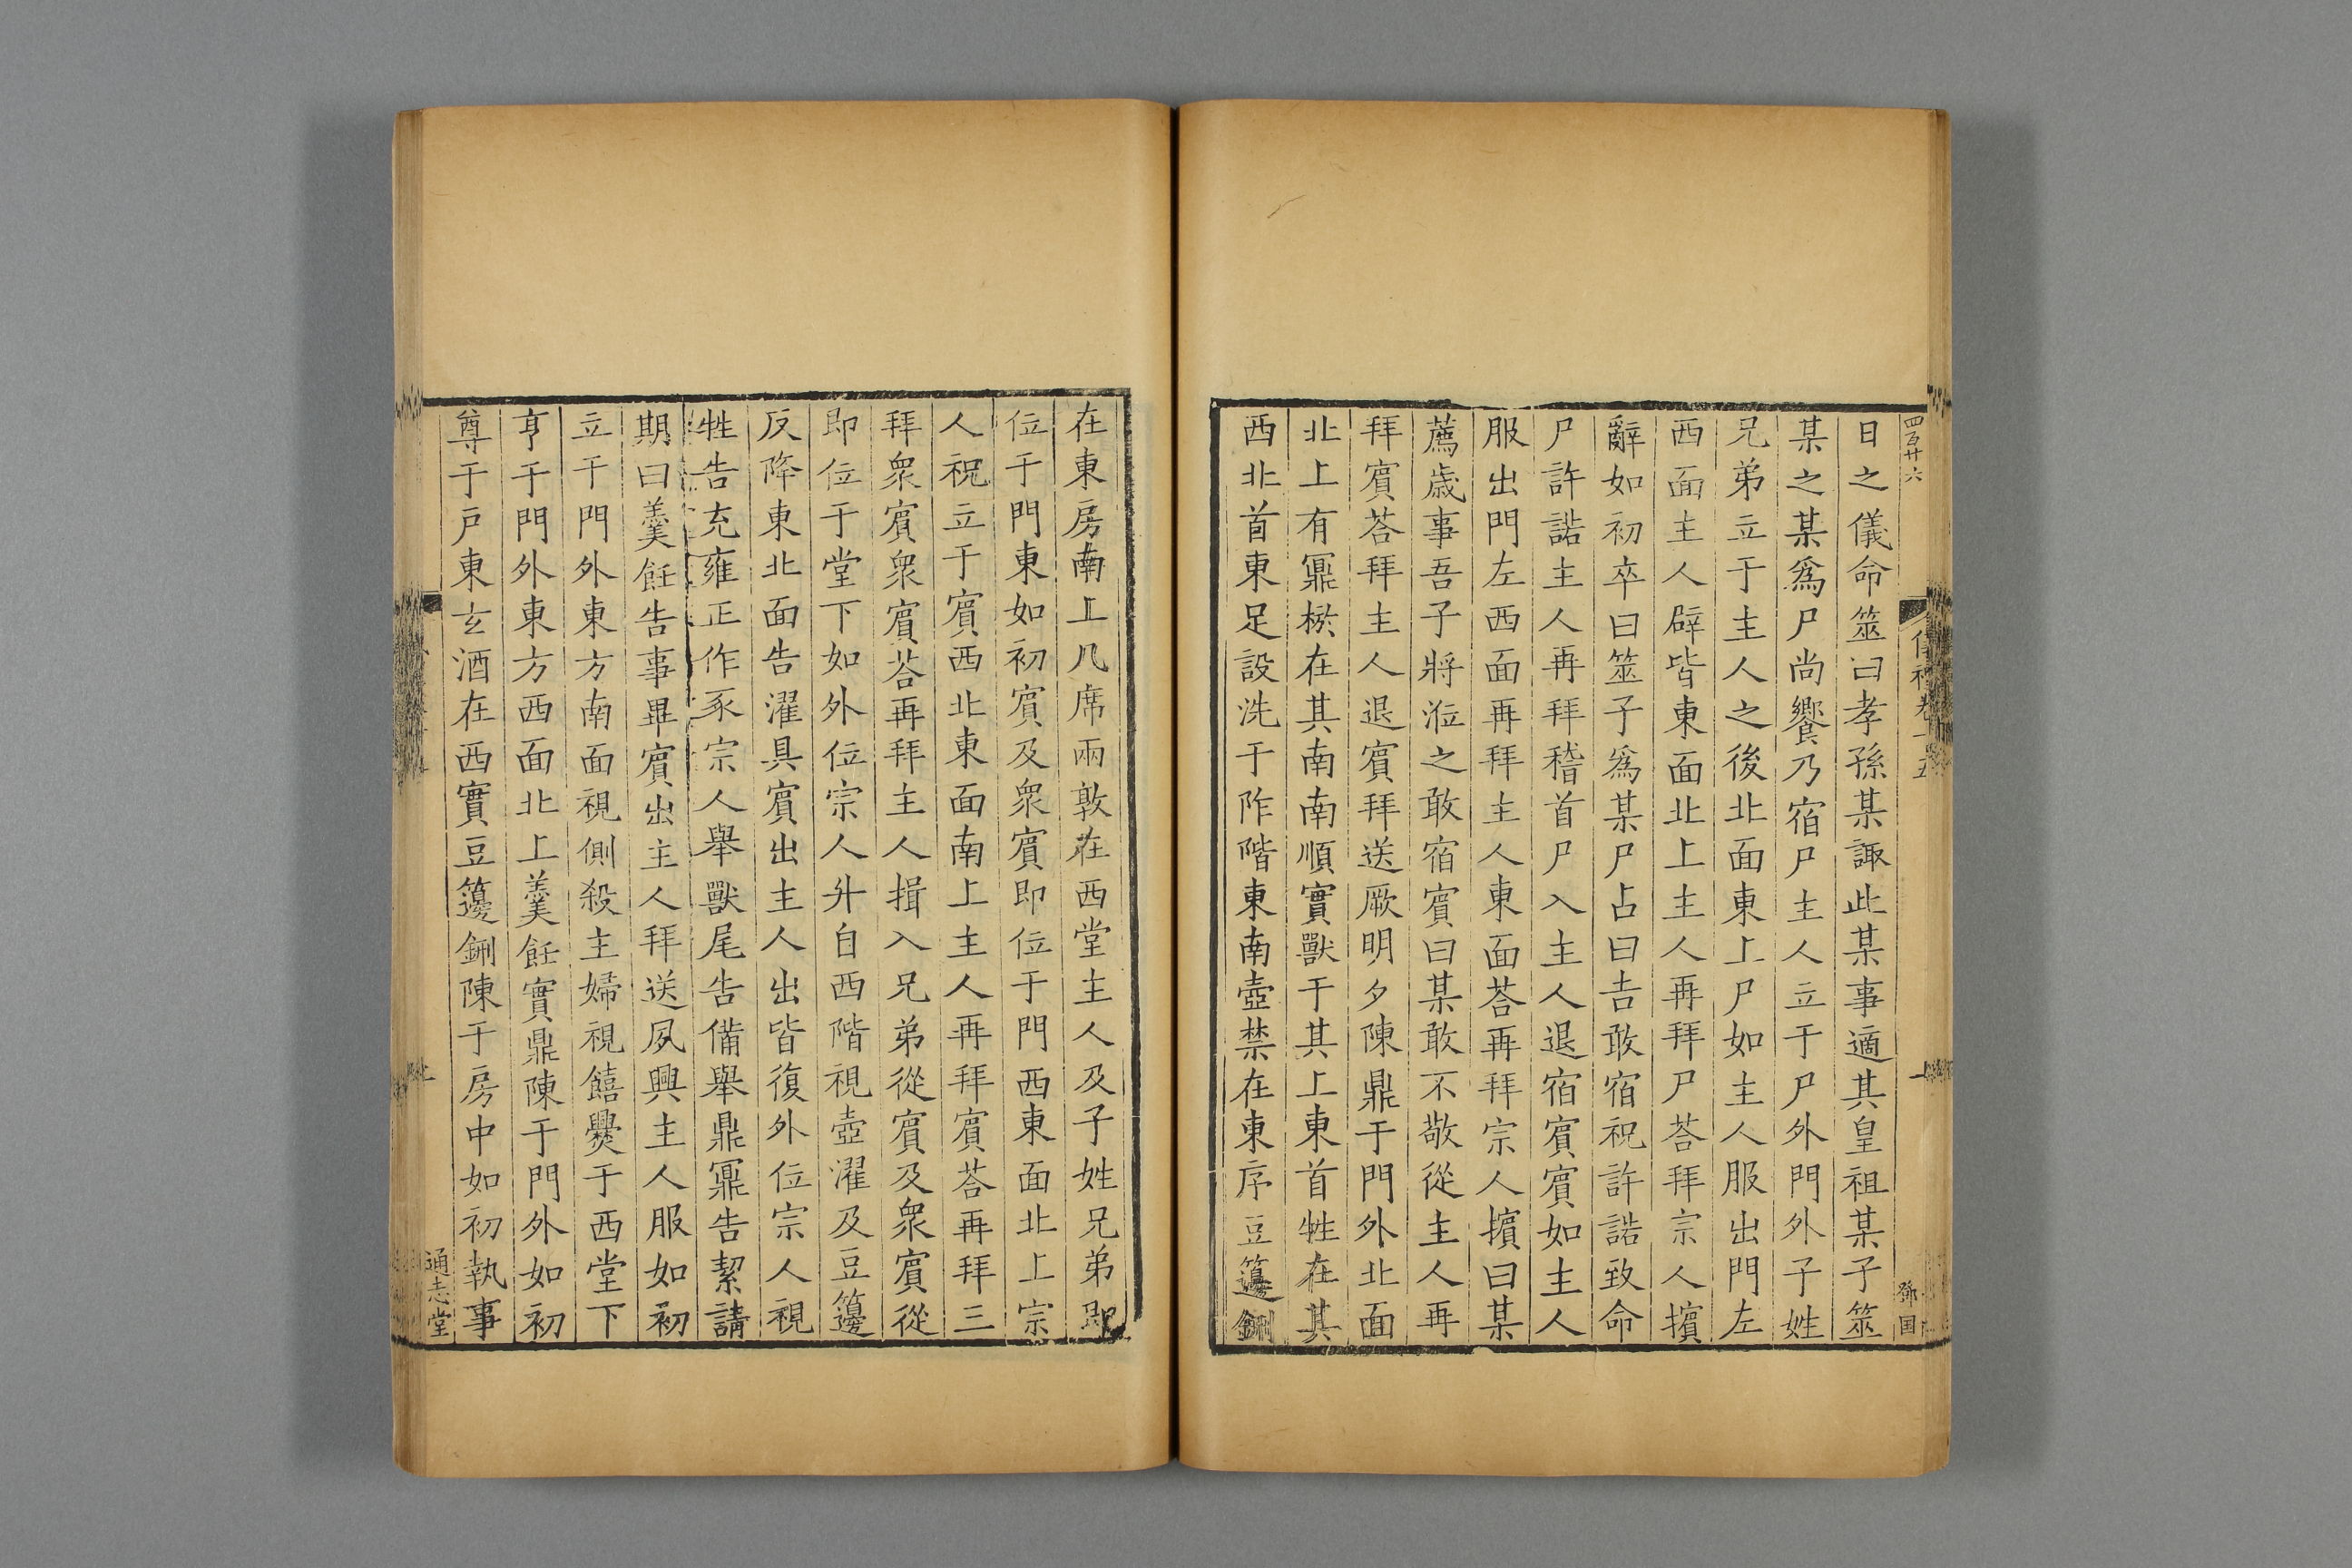 四百廿六
儀禮卷十五
鄧国
日之儀命筮曰孝孫某諏此某事適其皇祖某子筮
某之某爲尸尚饗乃宿尸主人立于尸外門外子姓
兄弟立于主人之後北面東上尸如主人服出門左
西面主人辟皆東面北上主人再拜尸荅拜宗人擯
辭如初卒曰筮子爲某尸占曰吉敢宿祝許諾致命
尸許諾主人再拜稽首尸入主人退宿賓賓如主人
服出門左西面再拜主人東面荅再拜宗人擯曰某
薦歲事吾子將涖之敢宿賓曰某敢不敬從主人再
拜賓荅拜主人退賓拜送厥明夕陳鼎于門外北面
北上有鼏棜在其南南順實獸于其上東首牲在其
西北首東足設洗于阼階東南壺禁在東序豆籩鉶
在東房南上几席兩敦在西堂主人及子姓兄弟即
位于門東如初賓及衆賓即位于門西東面北上宗
人祝立于賓西北東面南上主人再拜賓荅再拜三
拜衆賓衆賓荅再拜主人揖入兄弟從賓及衆賓從
即位于堂下如外位宗人升自西階視壺濯及豆籩
反降東北面告濯具賓出主人出皆復外位宗人視
牲告充雍正作豕宗人舉獸尾告備舉鼎鼏告絜請
期曰羹飪告事畢賓出主人拜送夙興主人服如初
立于門外東方南面視側殺主婦視饎爨于西堂下
亨于門外東方西面北上羹飪實鼎陳于門外如初
尊于戶東玄酒在西實豆籩鉶陳于房中如初執事
通志堂